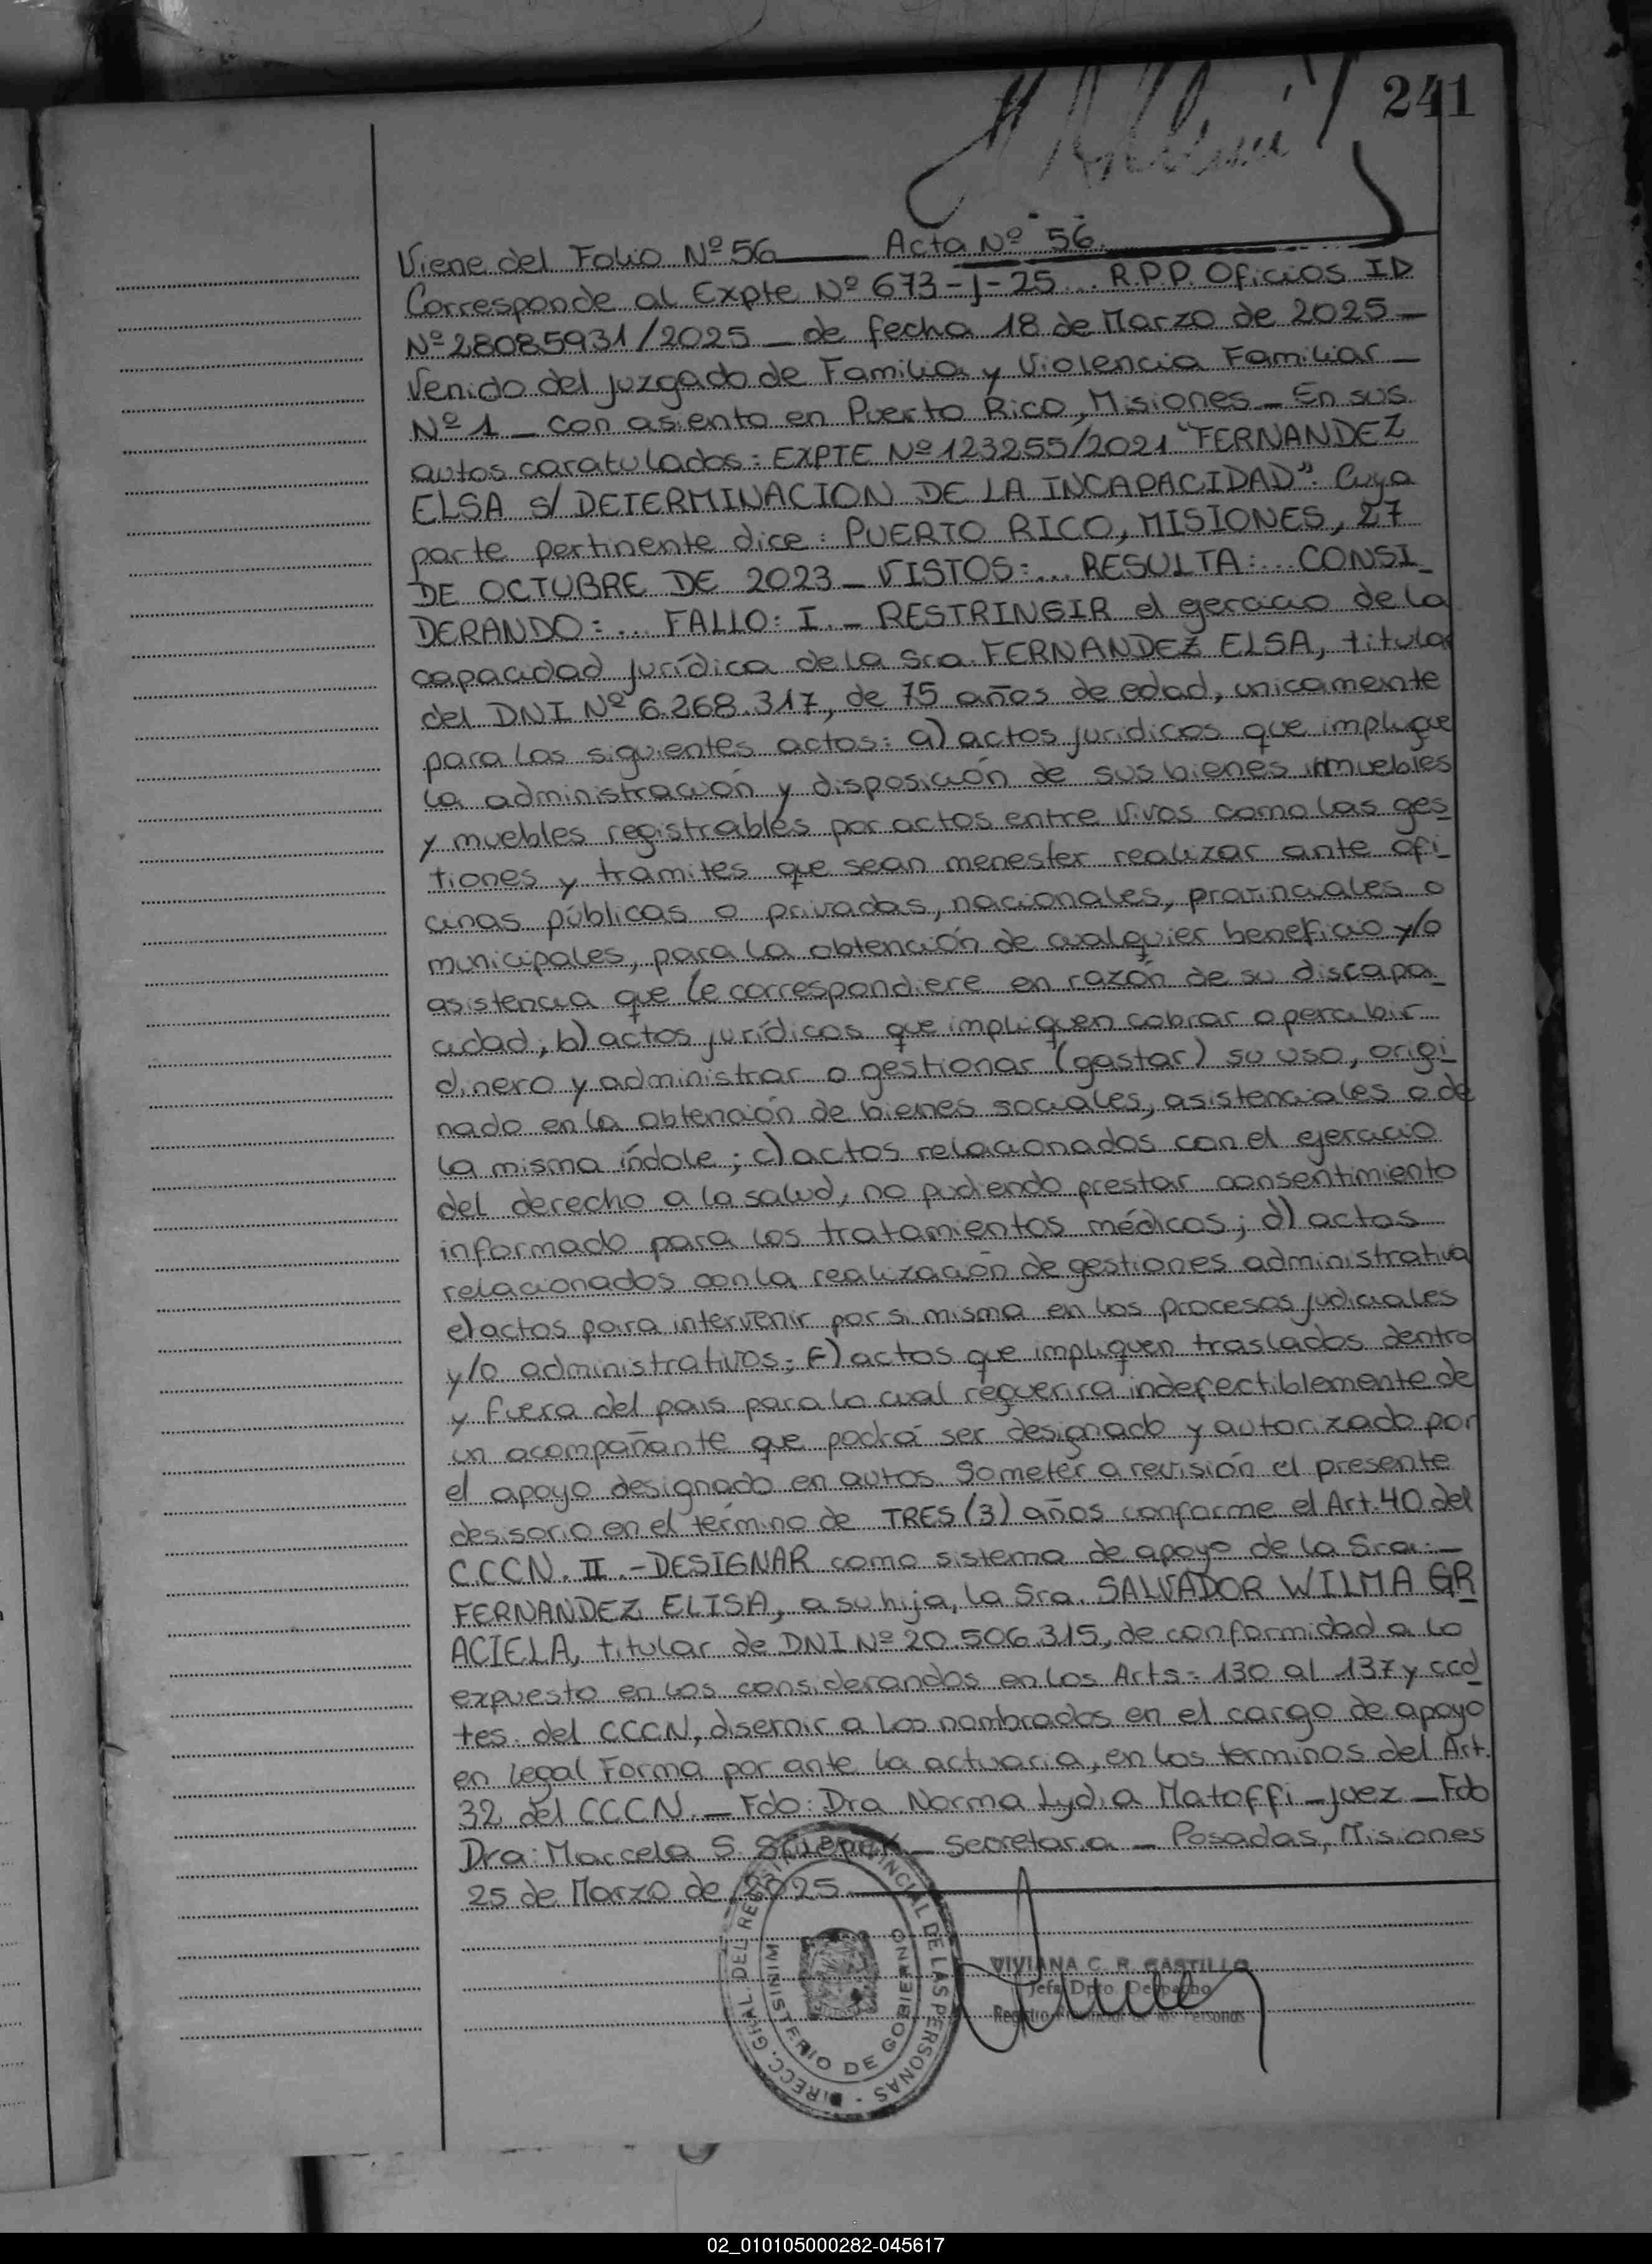 241
Viene del Folio Nº 56 Acta Nº 56.
Corresponde al Expte Nº 673-J-25... R.P.P. Oficios ID
Nº 28085931/2025 _ de fecha 18 de Marzo de 2025 _
Venido del Juzgado de Familia y Violencia Familiar _
Nº 1 _ con asiento en Puerto Rico, Misiones _ En sus
autos caratulados: EXPTE Nº 123255/2021 "FERNANDEZ
ELSA S/ DETERMINACION DE LA INCAPACIDAD". Cuya
parte pertinente dice: PUERTO RICO, MISIONES, 27
DE OCTUBRE DE 2023 _ VISTOS:... RESULTA:... CONSI_
DERANDO:... FALLO: I._ RESTRINGIR el gercicio de la
capacidad jurídica de la Sra. FERNANDEZ ELSA, titular
del DNI Nº 6.268.317, de 75 años de edad, unicamente
para los siguientes actos: a) actos juridicos que implique
la administración y disposición de sus bienes inmuebles
y muebles registrables por actos entre vivos como las ges_
tiones y tramites que sean menester realizar ante ofi_
cinas públicas o privadas, nacionales, provinciales o
municipales, para la obtención de cualquier beneficio y/o
asistencia que le correspondiere en razón de su discapa_
cidad; b) actos jurídicos que impliquen cobrar o percibir
dinero y administrar o gestionar (gastar) su uso, origi_
nado en la obtención de bienes sociales, asistenciales o de
la misma índole; c) actos relacionados con el ejercicio
del derecho a la salud, no pudiendo prestar consentimiento
informado para los tratamientos médicos; d) actos
relacionados con la realización de gestiones administrativa
e) actos para intervenir por si misma en los procesos judiciales
y/o administrativos; f) actos que impliquen traslados dentro
y fuera del pais para lo cual requerira indefectiblemente de
un acompañante que podrá ser designado y autorizado por
el apoyo designado en autos. Someter a revisión el presente
desisorio en el término de TRES (3) años conforme el Art. 40 del
CCCN. II.- DESIGNAR como sistema de apoyo de la Sra: _
FERNANDEZ ELISA, a su hija, la Sra. SALVADOR WILMA GR_
ACIELA, titular de DNI Nº 20.506.315, de conformidad a lo
expuesto en los considerandos en los Arts: 130 al 137 y ccd_
tes. del CCCN, disernir a los nombrados en el cargo de apoyo
en legal Forma por ante la actuaria, en los terminos del Art.
32 del CCCN. _ Fdo: Dra Norma Lydia Matoffi _ Juez _ Fdo
Dra: Marcela S. _ Secretaria _ Posadas, Misiones
25 de Marzo de 2025
DIRECC. GRAL. DEL REGISTRO PROVINCIAL DE LAS PERSONAS -
MINISTERIO DE GOBIERNO
VIVIANA C. R. CASTILLO
Jefa Dpto. Despacho
Registro Provincial de las Personas
02_010105000282-045617